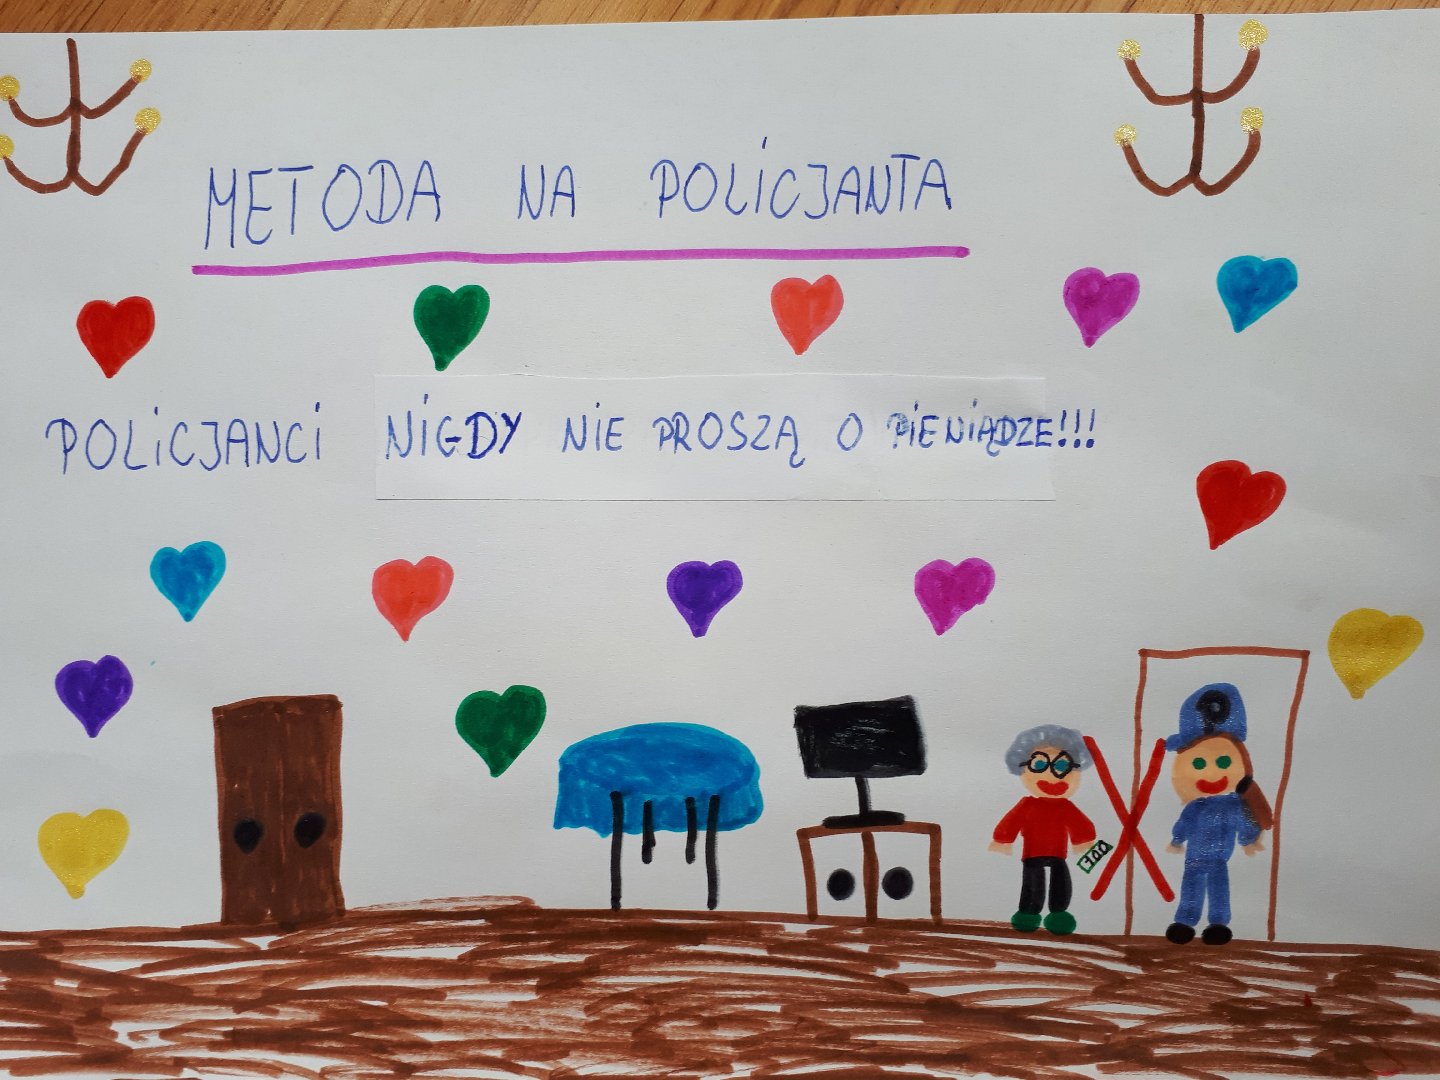 METODA NA POLiCJANTA
POLiCJANCi NiGDY NiE PROSZĄ O PiENiĄDZE!!!
100